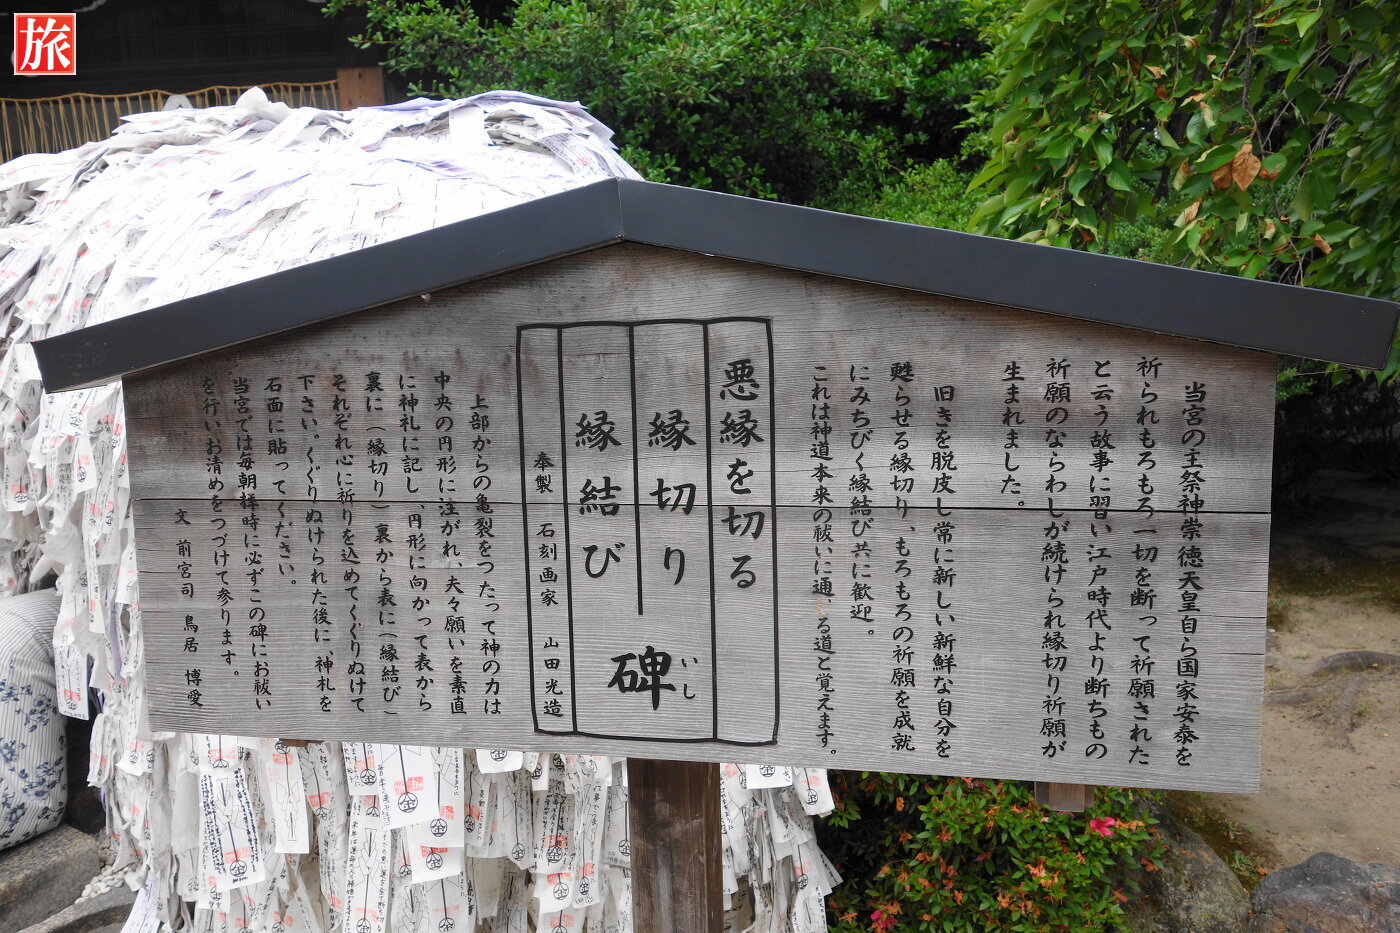 旅
当宮の主祭神崇徳天皇自ら国家安泰を
祈られもろもろ一切を断って祈願された
と云う故事に習い江戸時代より断ちもの
祈願のならわしが続けられ縁切り祈願が
生まれました。
旧きを脱皮し常に新しい新鮮な自分を
甦らせる縁切り、もろもろの祈願を成就
にみちびく縁結び共に歓迎。
これは神道本来の祓いに通ずる道と覚えます。
悪縁を切る
縁切り
縁結び
碑
いし
奉製 石刻画家 山田光造
上部からの亀裂をつたって神の力は
中央の円形に注がれ、夫々願いを素直
に神札に記し、円形に向かって表から
裏に(縁切り)裏から表に(縁結び)
それぞれ心に祈りを込めてくぐりぬけて
下さい。くぐりぬけられた後に、神札を
石面に貼ってください。
当宮では毎朝拝時に必ずこの碑にお祓い
を行いお清めをつづけて参ります。
文 前宮司 鳥居 博愛